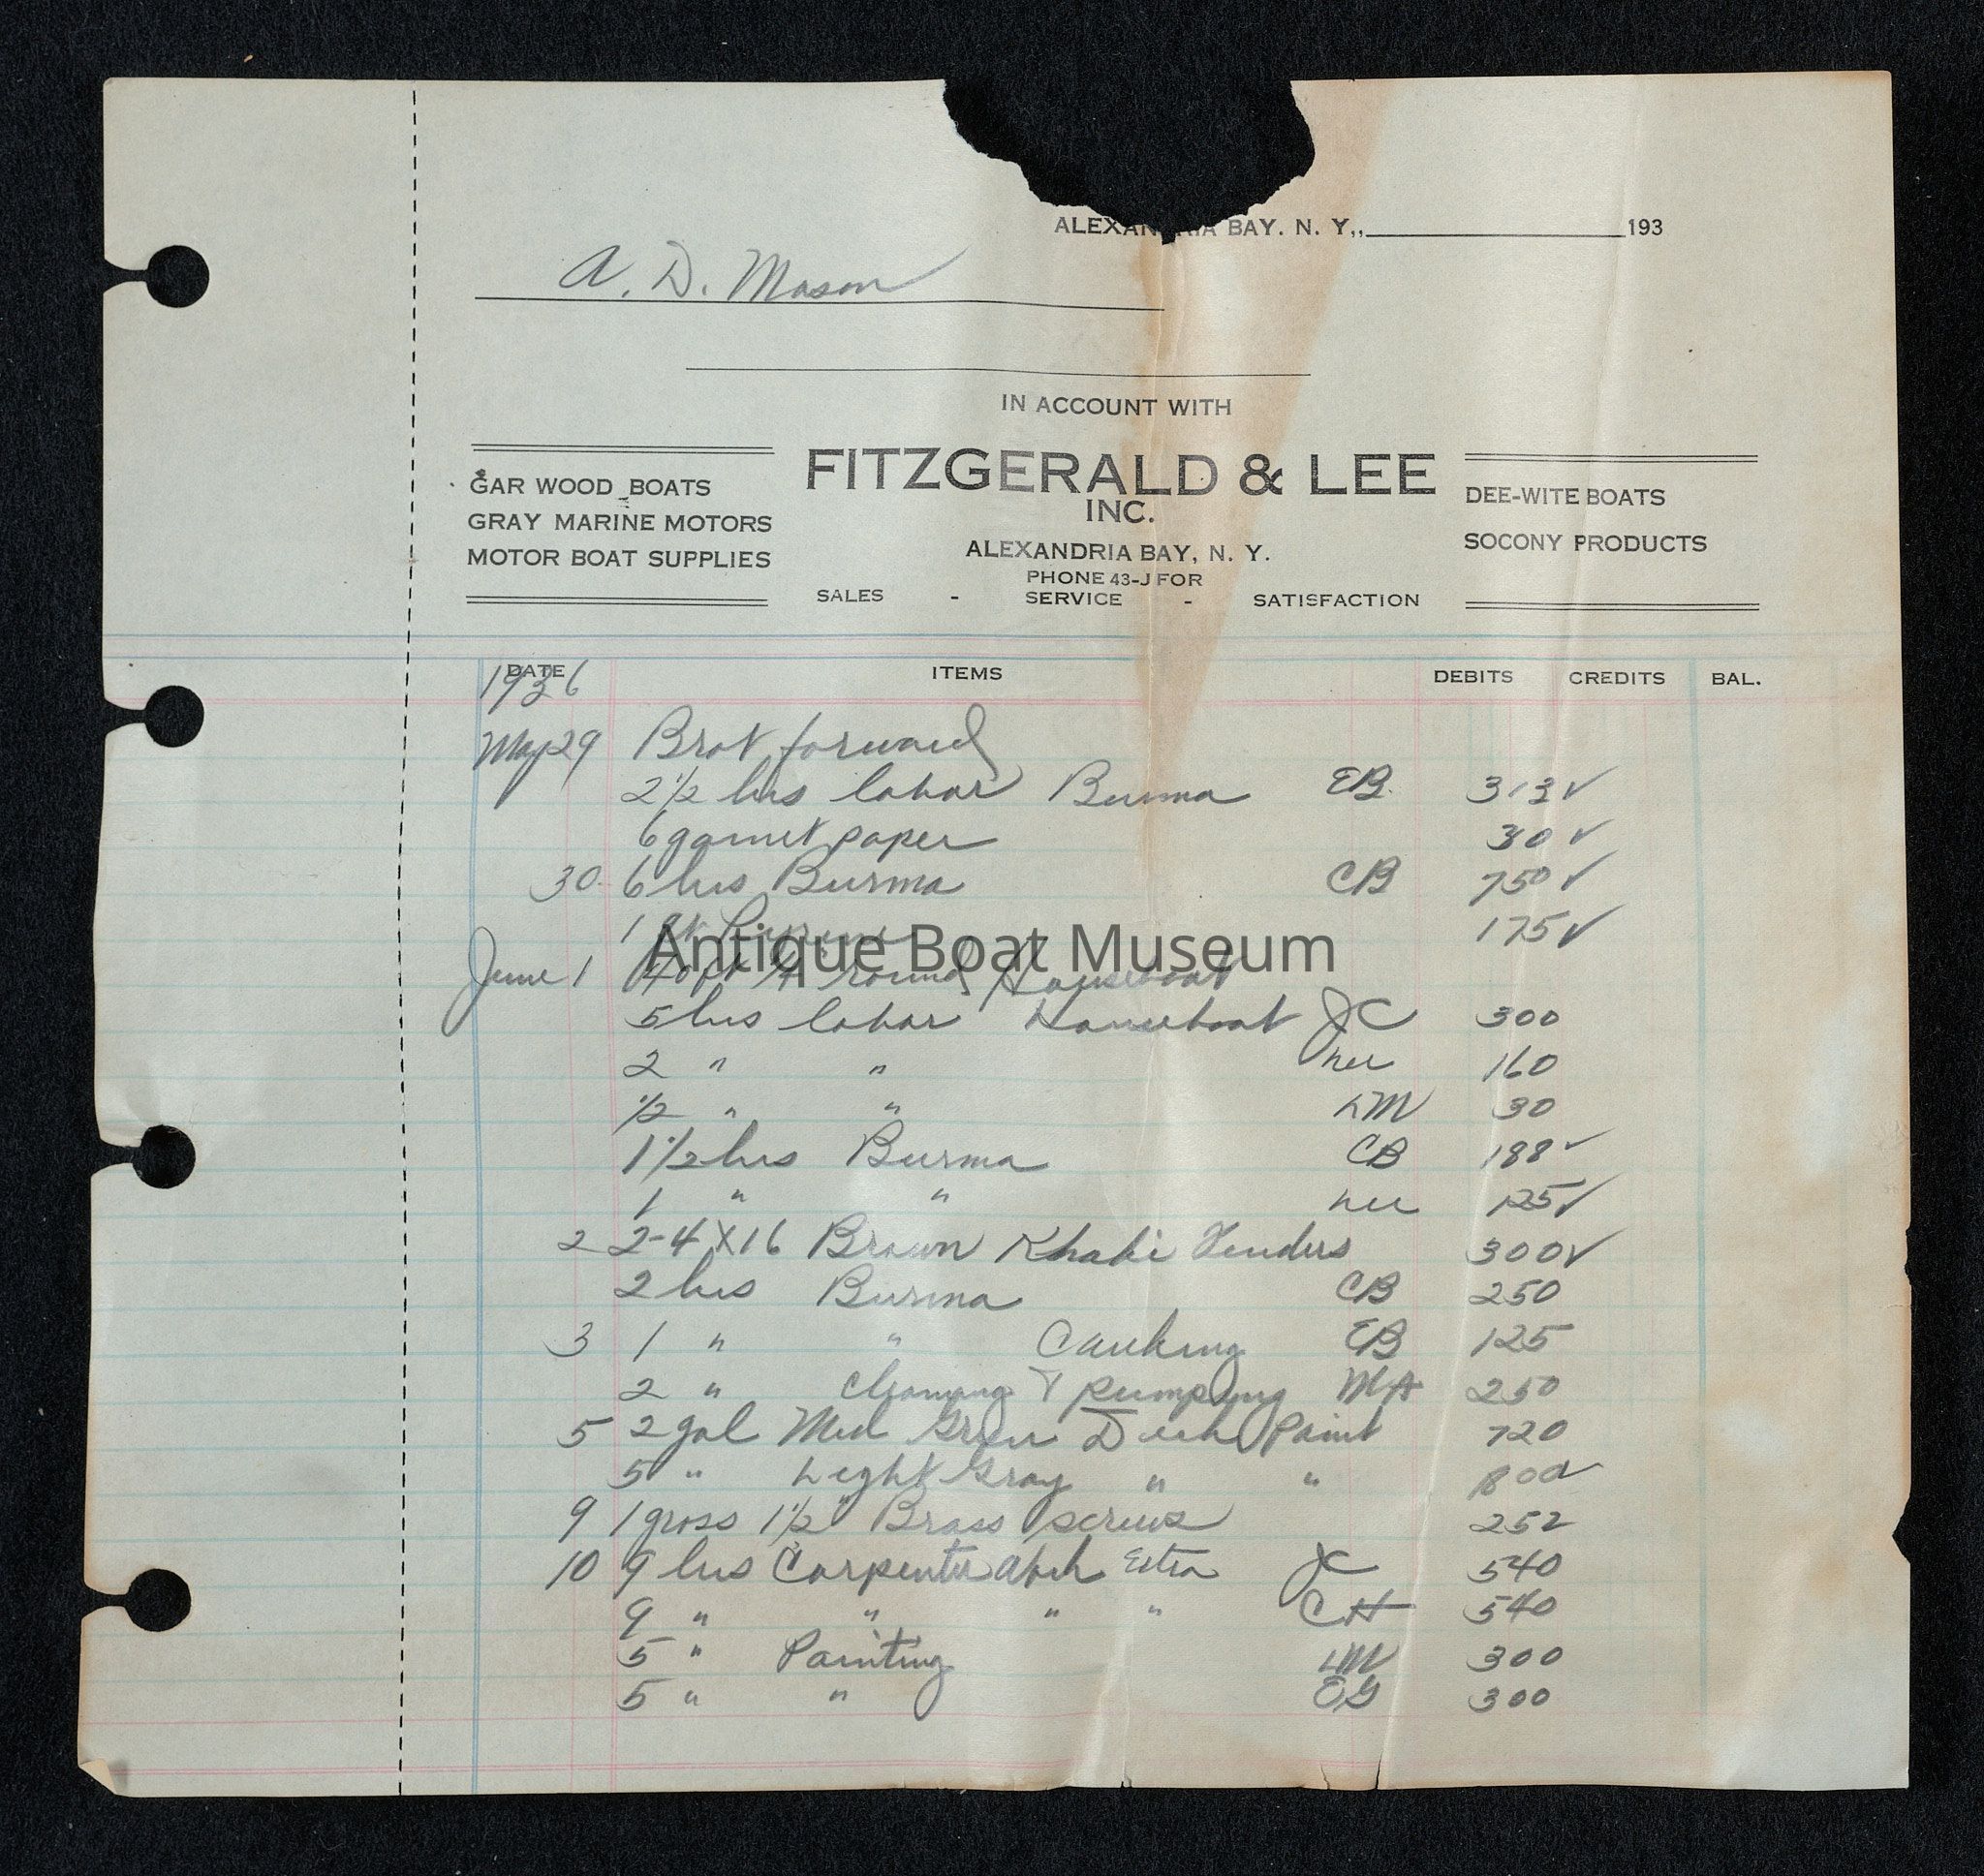 ALEXANDRIA BAY. N. Y.,, 193
A. D. Mason
IN ACCOUNT WITH
FITZGERALD & LEE
INC.
ALEXANDRIA BAY, N. Y.
PHONE 43-J FOR
SALES - SERVICE - SATISFACTION
GAR WOOD BOATS
GRAY MARINE MOTORS
MOTOR BOAT SUPPLIES
DEE-WITE BOATS
SOCONY PRODUCTS
DATE ITEMS DEBITS CREDITS BAL.
1936
May 29 Brot forward
2 1/2 hrs labor Burma EB 313 ✓
6 garnet paper 30 ✓
30 6 hrs Burma CB 750 ✓
1 qt 175 ✓
Antique Boat Museum
June 1 40 ft round Houseboat
5 hrs labor Houseboat JC 300
2 " " 160
1/2 " " LM 30
1 1/2 hrs Burma CB 188 ✓
1 " " 125 ✓
2 2-4 X 16 Brown Khaki Fenders 300 ✓
2 hrs Burma CB 250
3 1 " " Caulking EB 125
2 " Cleaning & pumping MA 250
5 2 gal Med Green Deck Paint 720
5 " Light Gray " "
9 1 gross 1 1/2" Brass screws 252
10 9 hrs Carpenter Extra JC 540
9 " " " " CH 540
5 " Painting LM 300
5 " " EG 300